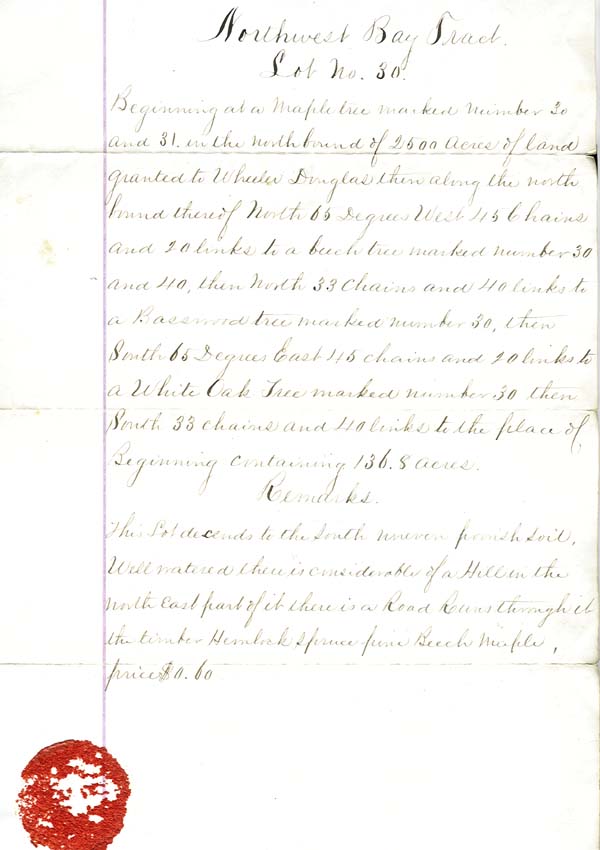 Northwest Bay Tract.
Lot No. 30.
Beginning at a Maple tree marked number 30
and 31. in the north bound of 2500 Acres of land
granted to Wheeler Douglas then along the north
bound thereof North 65 Degrees West 45 Chains
and 20 links to a beech tree marked number 30
and 40, then North 33 Chains and 40 links to
a Basswood tree marked number 30, then
South 65 Degrees East 45 chains and 20 links to
a White Oak Tree marked number 30 then
South 33 chains and 40 links to the place of
Beginning containing 136.8 acres.
Remarks.
This Lot decends to the South uneven poorish Soil,
Well watered there is considerable of a Hill in the
north East part of it there is a Road Runs through it
the timber Hemlock Spruce pine Beech Maple,
price $0.60